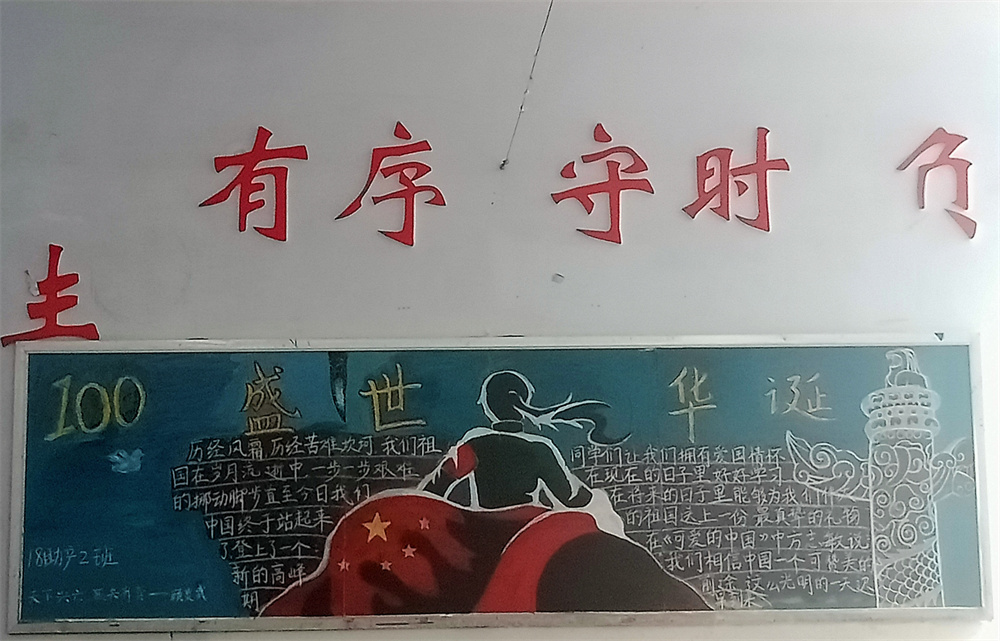 有序 守时 负
主
100 盛世华诞
历经风霜 历经苦难坎坷 我们祖
国在岁月流逝中一步一步艰难
的挪动脚步直至今日我们
中国终于站起来
了登上了一个
新的高峰
期
同学们让我们拥有爱国情怀
在现在的日子里好好学习
在将来的日子里能够为我们
的祖国送上一份最真挚的礼物
在《可爱的中国》中方志敏说
我们相信中国一个可
光明的一天
18助产2班
天下兴亡